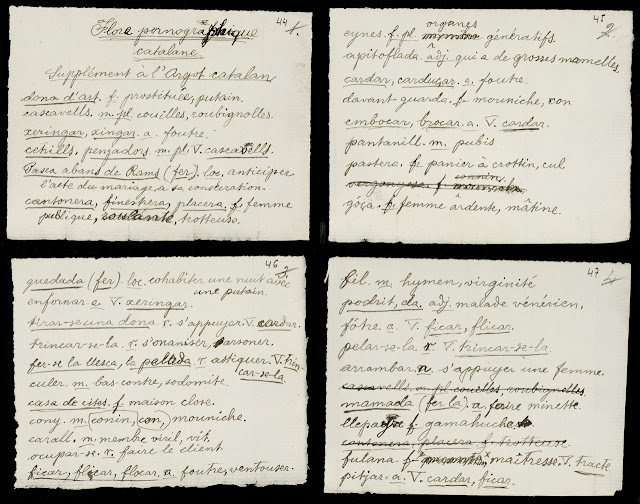 44 1.
Flore pornographique
catalane
Supplément à l'Argot catalan
dona d'art. f. prostituée, putain.
cascavells. m. pl. couilles, roubignolles.
xeringar, xingar. a. foutre.
cetrills, penjadors m. pl. V. cascavells.
Pasca abans de Rams (fer). loc. anticiper
l'acte du mariage à sa consécration.
cantonera, finestrera, placera, f. femme
publique, roulante, trotteuse.
45 2.
eynes. f. pl. organes génératifs.
apitoflada. adj. qui a de grosses mamelles.
cardar, carduçar. a. foutre.
davant-guarda. f. mouniche, con
embocar, brocar. a. V. cardar.
pantanill. m. pubis
pastera. f. panier à crottin, cul
goça. f. femme ardente, mâtine.
46 3.
quedada (fer). loc. cohabiter une nuit avec
une putain.
enfornar. a V. xeringar.
tirar-se una dona. r. s'appuyer. V. cardar.
trincar-se-la. r. s'onaniser, arsoner.
fer-se la llesca, la pellada. r. astiquer. V. trin-
car-se-la.
culer. m. bas-contre, sodomite.
casa de cites. f. maison close.
cony. m. conin, con, mouniche.
carall. m. membre viril, vit.
ocupar-se. r. faire le client.
ficar, flicar, flocar. a. foutre, ventouser.
47 4
fil. m. hymen, virginité
podrit, da. adj. malade vénérien.
fótre. a. V. ficar, flicar.
pelar-se-la. r. V. trincar-se-la.
arrambar. a. s'appuyer une femme.
cascavells. m. pl. couilles, roubignolles
mamada (fer la). a. faire minette.
f. gamahuche.
cantonera, placera. f. trotteuse
fulana. f. maîtresse. V. tracte
pitjar. a. V. cardar, ficar.